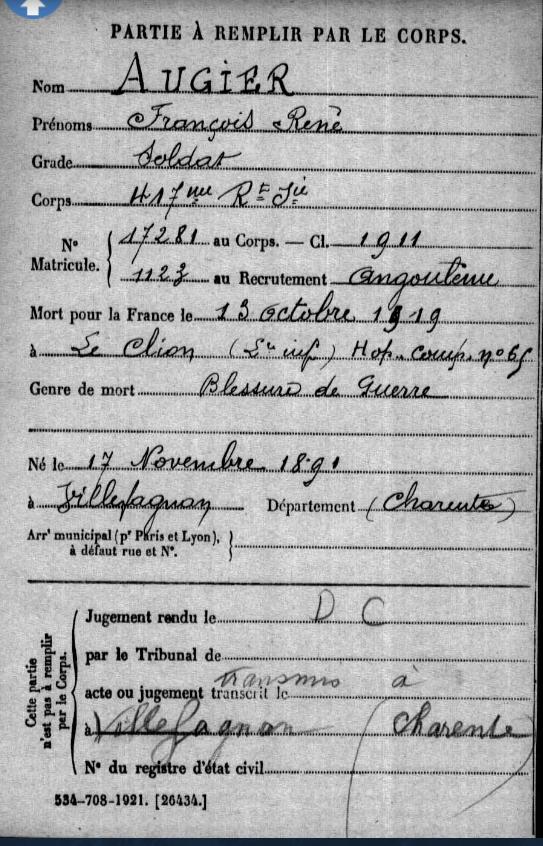 PARTIE À REMPLIR PAR LE CORPS.
Nom AUGIER
Prénoms François René
Grade Soldat
Corps 417me Rt Iie
N° Matricule. 17281 au Corps. — Cl. 1911
1123 au Recrutement Angoulême
Mort pour la France le 13 Octobre 1919
à Le Clion (Lre inf) Hop. comp. n° 65
Genre de mort Blessures de Guerre
Né le 17 Novembre 1891
à Villefagnan Département (Charente)
Arrt municipal (pr Paris et Lyon),
à défaut rue et N°.
Cette partie n'est pas à remplir par le Corps.
Jugement rendu le D C
par le Tribunal de
transmis à
acte ou jugement transcrit le
à Villefagnan (Charente)
N° du registre d'état civil
534-708-1921. [26434.]